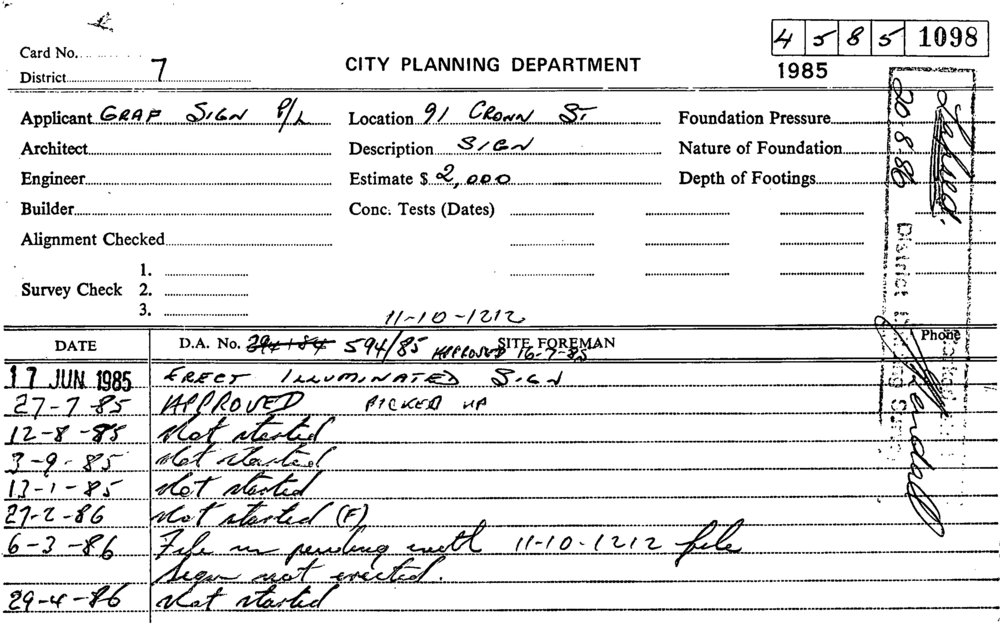 4 5 8 5 1098
1985
Card No.
District 7
CITY PLANNING DEPARTMENT
Applicant GRAF SIGN P/L
Location 91 CROWN ST
Foundation Pressure
Architect
Description SIGN
Nature of Foundation
Engineer
Estimate $ 2,000
Depth of Footings
Builder
Conc. Tests (Dates)
Alignment Checked
Survey Check
1.
2.
3.
20·8·86
District
11-10-1212
DATE
D.A. No. 394/84 594/85 APPROVED 16-7-85
SITE FOREMAN
Phone
17 JUN 1985 ERECT ILLUMINATED SIGN
27-7-85 APPROVED PICKED UP
12-8-85 Not started
3-9-85 Not started
13-1-85 Not started
27-2-86 Not started (F)
6-3-86 File in pending with 11-10-1212 file
Sign not erected.
29-4-86 Not started